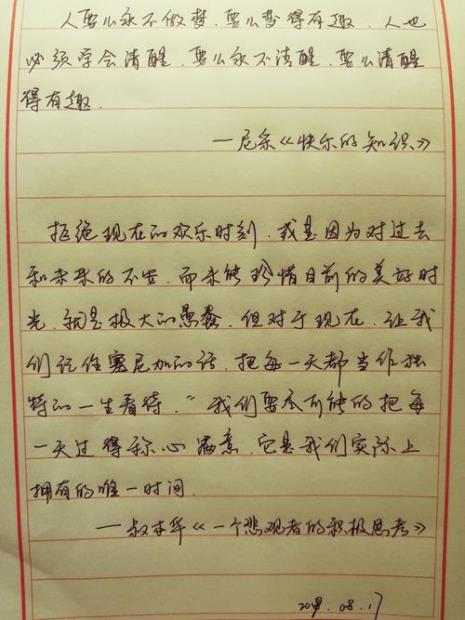 人要么永不做梦，要么梦得有趣．人也
必须学会清醒．要么永不清醒，要么清醒
得有趣．
—尼采《快乐的知识》
拒绝现在的欢乐时刻，或是因为对过去
和未来的不安，而未能珍惜目前的美好时
光，都是极大的愚蠢．但对于现在，让我
们记住塞尼加的话，把每一天都当作独
特的一生看待．“我们要尽可能的把每
一天过得称心满意，它是我们实际上
拥有的唯一时间．
—叔本华《一个悲观者的积极思考》
08.17